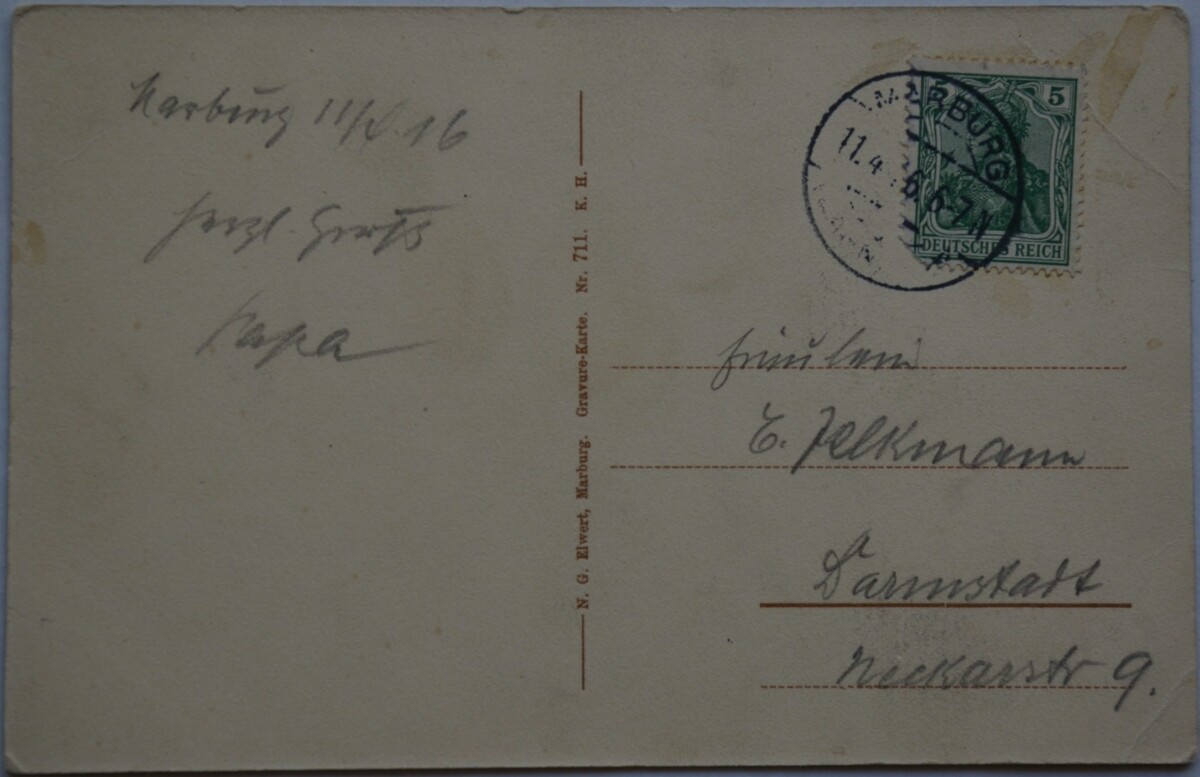 Marburg 11/4. 16
herzl. Gruß
Papa
N. G. Elwert, Marburg. Gravure-Karte. Nr. 711. K. H.
MARBURG
11.4. 6 6-7 N
5
DEUTSCHES REICH
Fräulein
E. Jelkmann
Darmstadt
Neckarstr 9.